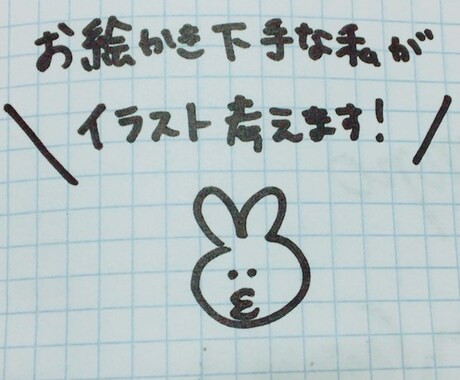 お絵かき下手な私が
\イラスト考えます!/